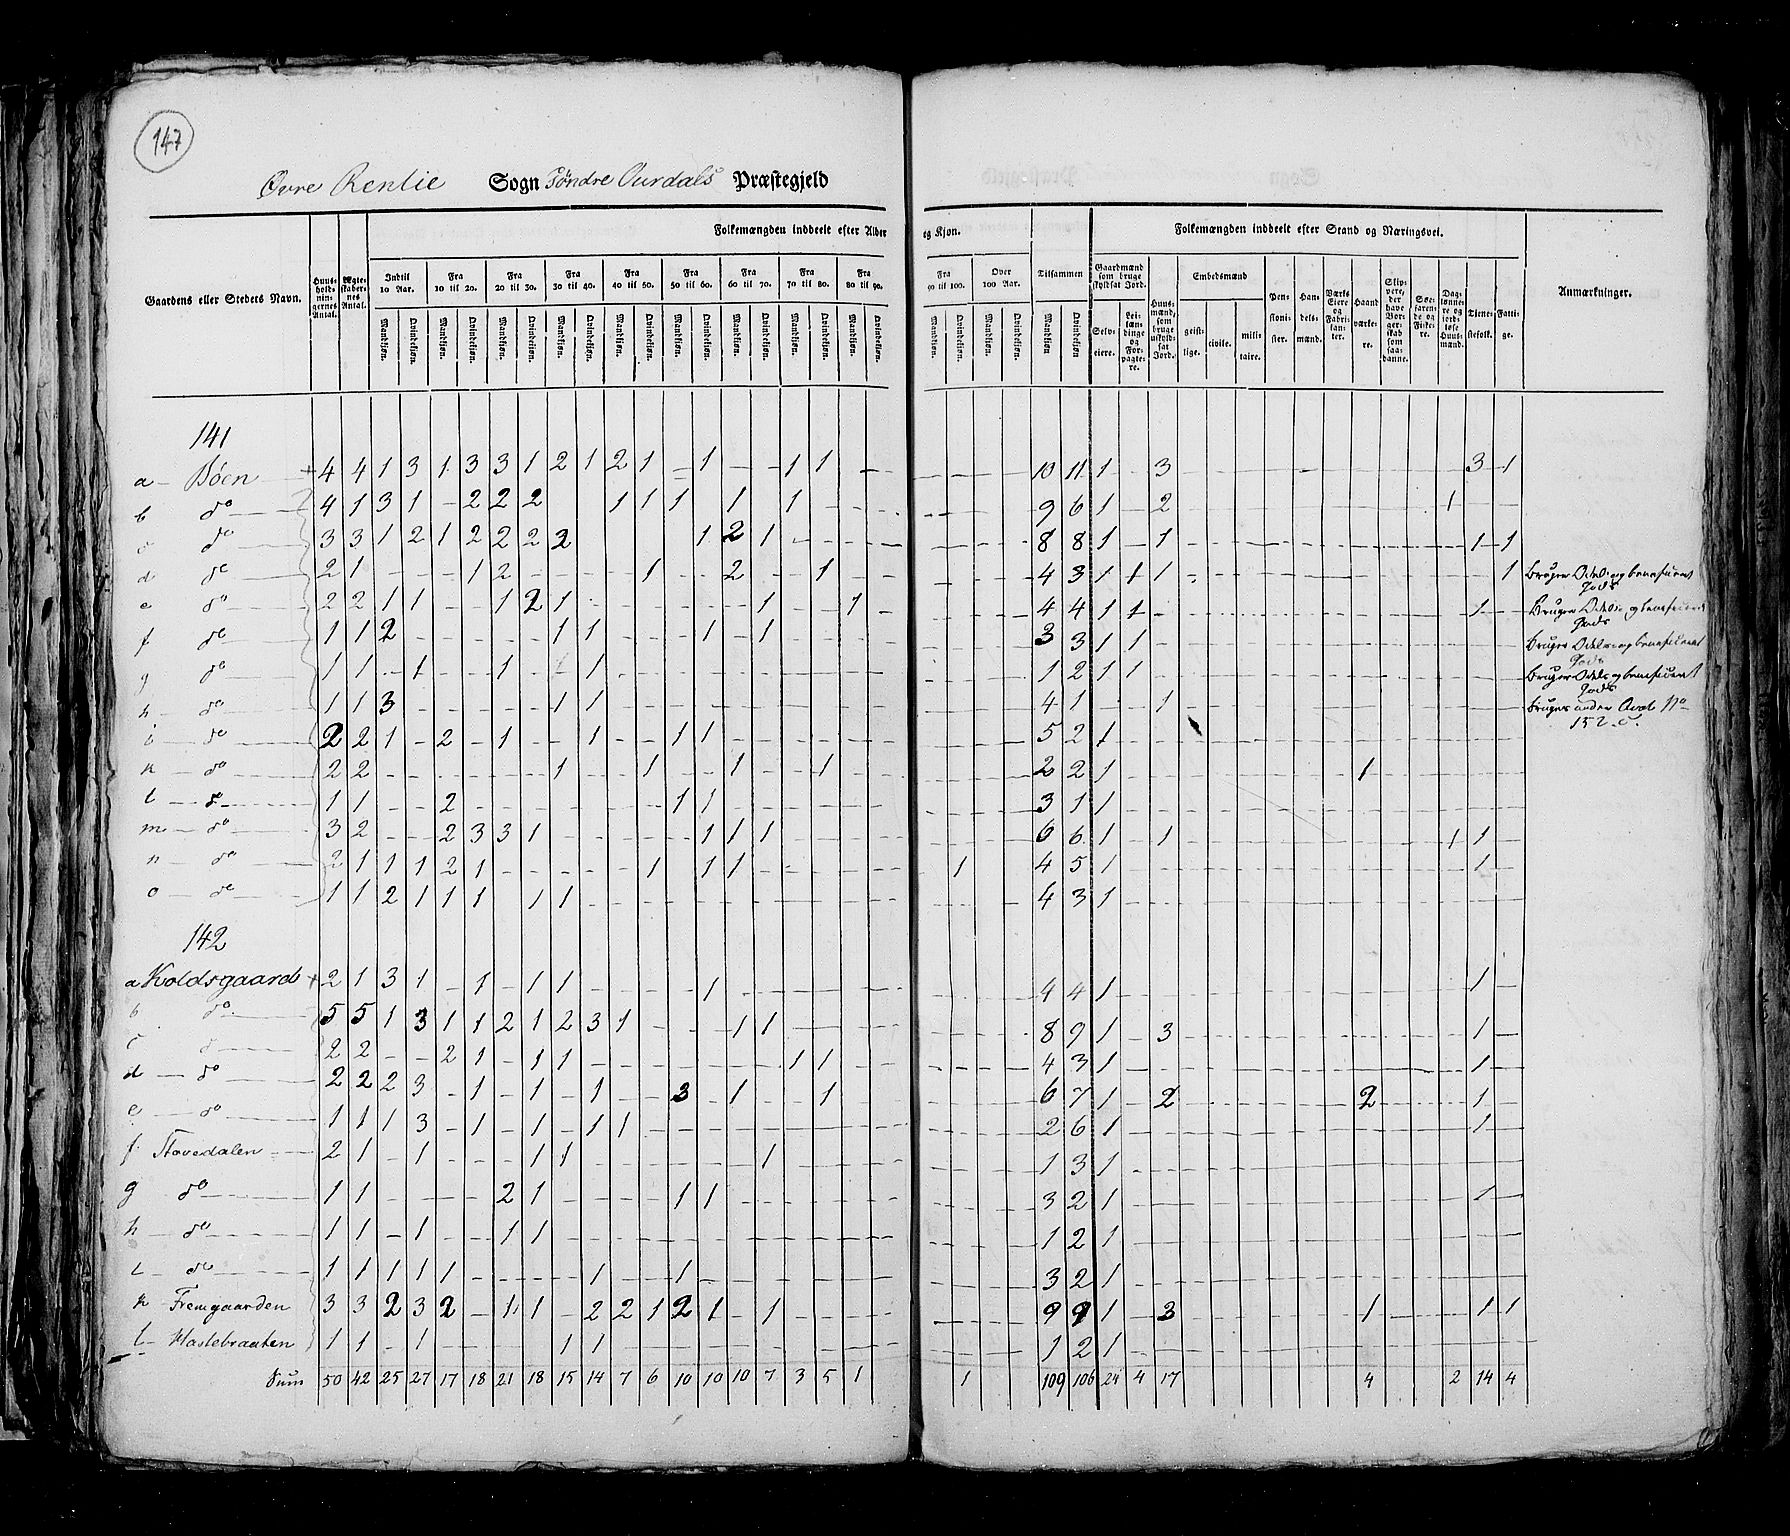 147
Øvre Renlie Sogn Söndre Ourdals Præstegjeld
Gaardens eller Stedets Navn.
Huusholdningernes Antal.
Ægteskabernes Antal.
Folkemængden inddeelt efter Alder og Kjøn.
Indtil 10 Aar. Fra 10 til 20. Fra 20 til 30. Fra 30 til 40. Fra 40 til 50. Fra 50 til 60. Fra 60 til 70. Fra 70 til 80. Fra 80 til 90. Fra 90 til 100. Over 100 Aar. Tilsammen
Mandkjøn. Qvindekjøn.
Folkemængden inddeelt efter Stand og Næringsvei.
Gaardmænd som bruge skyldsat Jord.
Selveiere. Leilændinge og Forpagtere.
Huusmænd, som bruge uskyldsat Jord.
Embedsmænd
geistlige. civile. militaire.
Pensionister. Handelsmænd. Værks Eiere og Fabrikanter. Haandværkere. Skippere, der have Borgerskab som saadanne. Søefarende og Fiskere. Daglønnere og jordløse Huusmænd. Tjenestefolk. Fattige.
Anmærkninger.
141
a Böen 4 4 1 3 1 3 3 1 2 1 2 1 - 1 - - 1 1 - - - - - 10 11 1 - 3 3 1
b do 4 1 3 1 - 2 2 2 1 1 1 - 1 - 1 9 6 1 - 2 1 - -
c do 3 3 1 2 1 2 2 2 2 1 2 1 8 8 1 - 1 1 1
d do 2 1 - - - 1 2 - - - - 1 - - 2 - - 1 4 3 1 1 1 1 Bruger Odels og beneficeret Gods
e do 2 2 1 1 - - 1 2 1 1 - - 1 - 4 4 1 1 1 - Bruger Odels og beneficeret Gods
f do 1 1 2 1 1 1 - 1 3 3 1 1 Bruger Odels og beneficeret Gods
g do 1 1 - 1 - - 1 - 1 1 2 1 1 Bruger Odels og beneficeret Gods
h do 1 1 3 1 1 4 1 - - 1 Bruges under No 152. c.
i do 2 2 1 - 2 - 1 - - 1 - - 1 1 5 2 1
k do 2 2 1 - - 1 - - 1 - - 1 2 2 1 1
l do 1 1 - - 2 1 1 3 1 1
m do 3 2 - - 2 3 3 1 1 1 1 6 6 1 - 1 1 1
n do 2 1 1 1 2 1 1 - 1 1 1 4 5 1 1
o do 1 1 2 1 1 1 - 1 1 4 3 1
142
a Koldsgaard 2 1 3 1 - 1 - 1 1 1 4 4 1 1
b do 5 5 1 3 1 1 2 1 2 3 1 - - - 1 1 8 9 1 - 3 1
c do 2 2 - - 2 1 - 1 1 1 1 4 3 1 1
d do 2 2 2 3 - 1 - 1 - 1 - - 3 - 1 - - 1 6 7 1 - 2 2 1
e do 1 1 1 3 - 1 - 1 - 1 1 2 6 1 1
f Stavedalen 2 1 - 1 - - - 1 1 1 1 3 1
g do 1 1 - - - - 2 1 - - - - 1 1 3 2 1 1
h do 1 1 - 1 - - 1 1 1 2 1
i do 1 1 1 1 1 1 - - 1 3 2 1
k Fremgaarden 3 3 2 3 2 - 1 1 - 2 2 1 2 1 - 1 9 9 1 - 3 1 1 1
l Haslebraaten 1 1 - 1 1 1 1 2 1
Sum 50 42 25 27 17 18 21 18 15 14 7 6 10 10 10 7 3 5 1 1 109 106 24 4 17 4 2 14 4